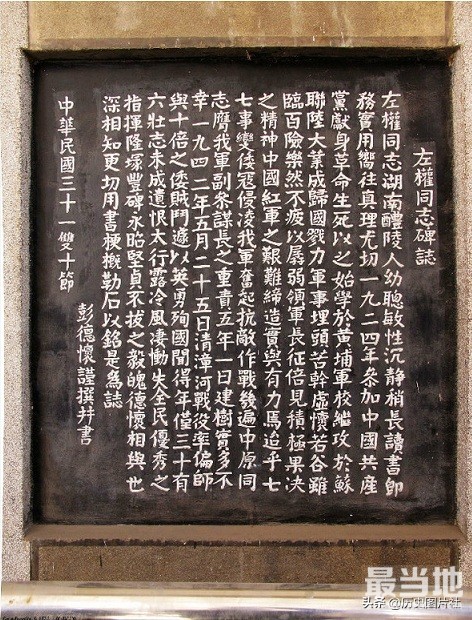 左權同志碑誌
左權同志湖南醴陵人幼聰敏性沉靜稍長讀書即
務實用嚮往真理尤切一九二四年參加中國共產
黨獻身革命生死以之始學於黃埔軍校繼攻於蘇
聯陸大業成歸國戮力軍事埋頭苦幹虛懷若谷雖
臨百險樂然不疲以孱弱領軍長征倍見積極果決
之精神中國紅軍之艱難締造實與有力焉迨乎七
七事變倭寇侵凌我軍奮起抗敵作戰幾遍中原同
志膺我軍副參謀長之重責五年一日建樹實多不
幸一九四二年五月二十五日清漳河戰役率偏師
與十倍之倭賊鬥遽以英勇殉國聞得年僅三十有
六壯志未成遺恨太行露冷風淒慟失全民優秀之
指揮隆塚豐碑永昭堅貞不拔之毅魄德懷相與也
深相知更切用書梗概勒石以銘是為誌
彭德懷謹撰并書
中華民國三十一雙十節
最当地
头条@历史图片社